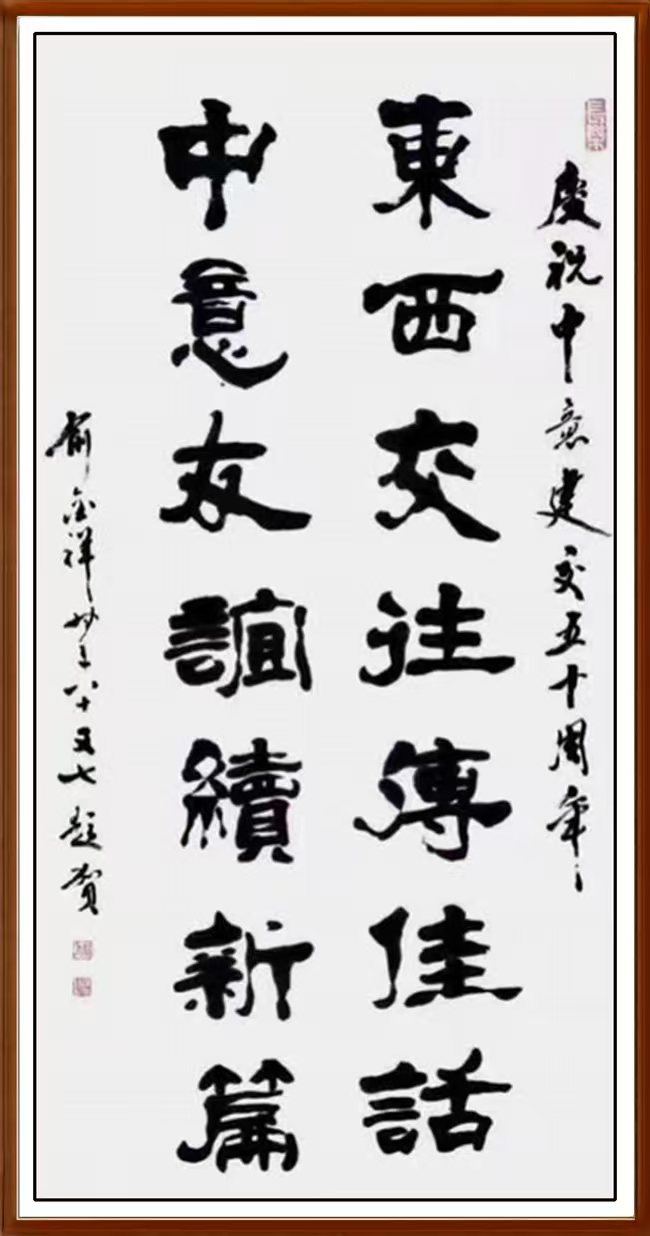 慶祝中意建交五十周年
東西交往傳佳話
中意友誼續新篇
俞金祥 八十又七題賀